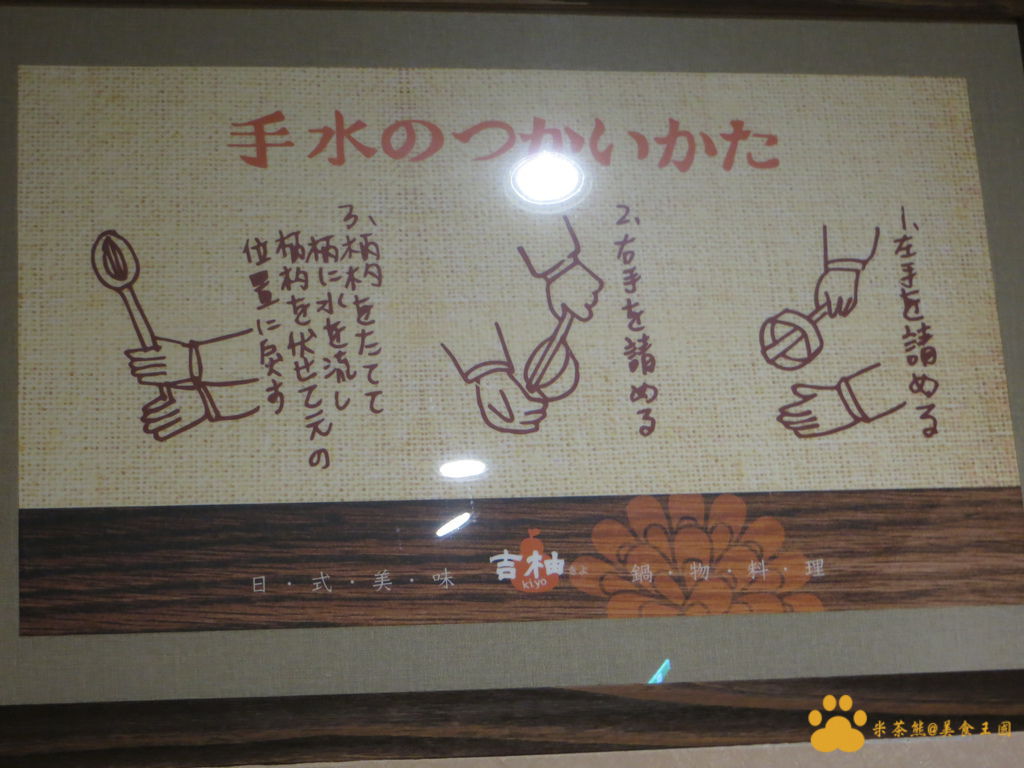 手水のつかいかた
1、左手を詰める
2、右手を詰める
3、柄杓をたてて
柄に水を流し
柄杓を伏せて元の
位置に戻す
日・式・美・味
吉柚
きよ
kiyo
鍋・物・料・理
米茶熊@美食王國